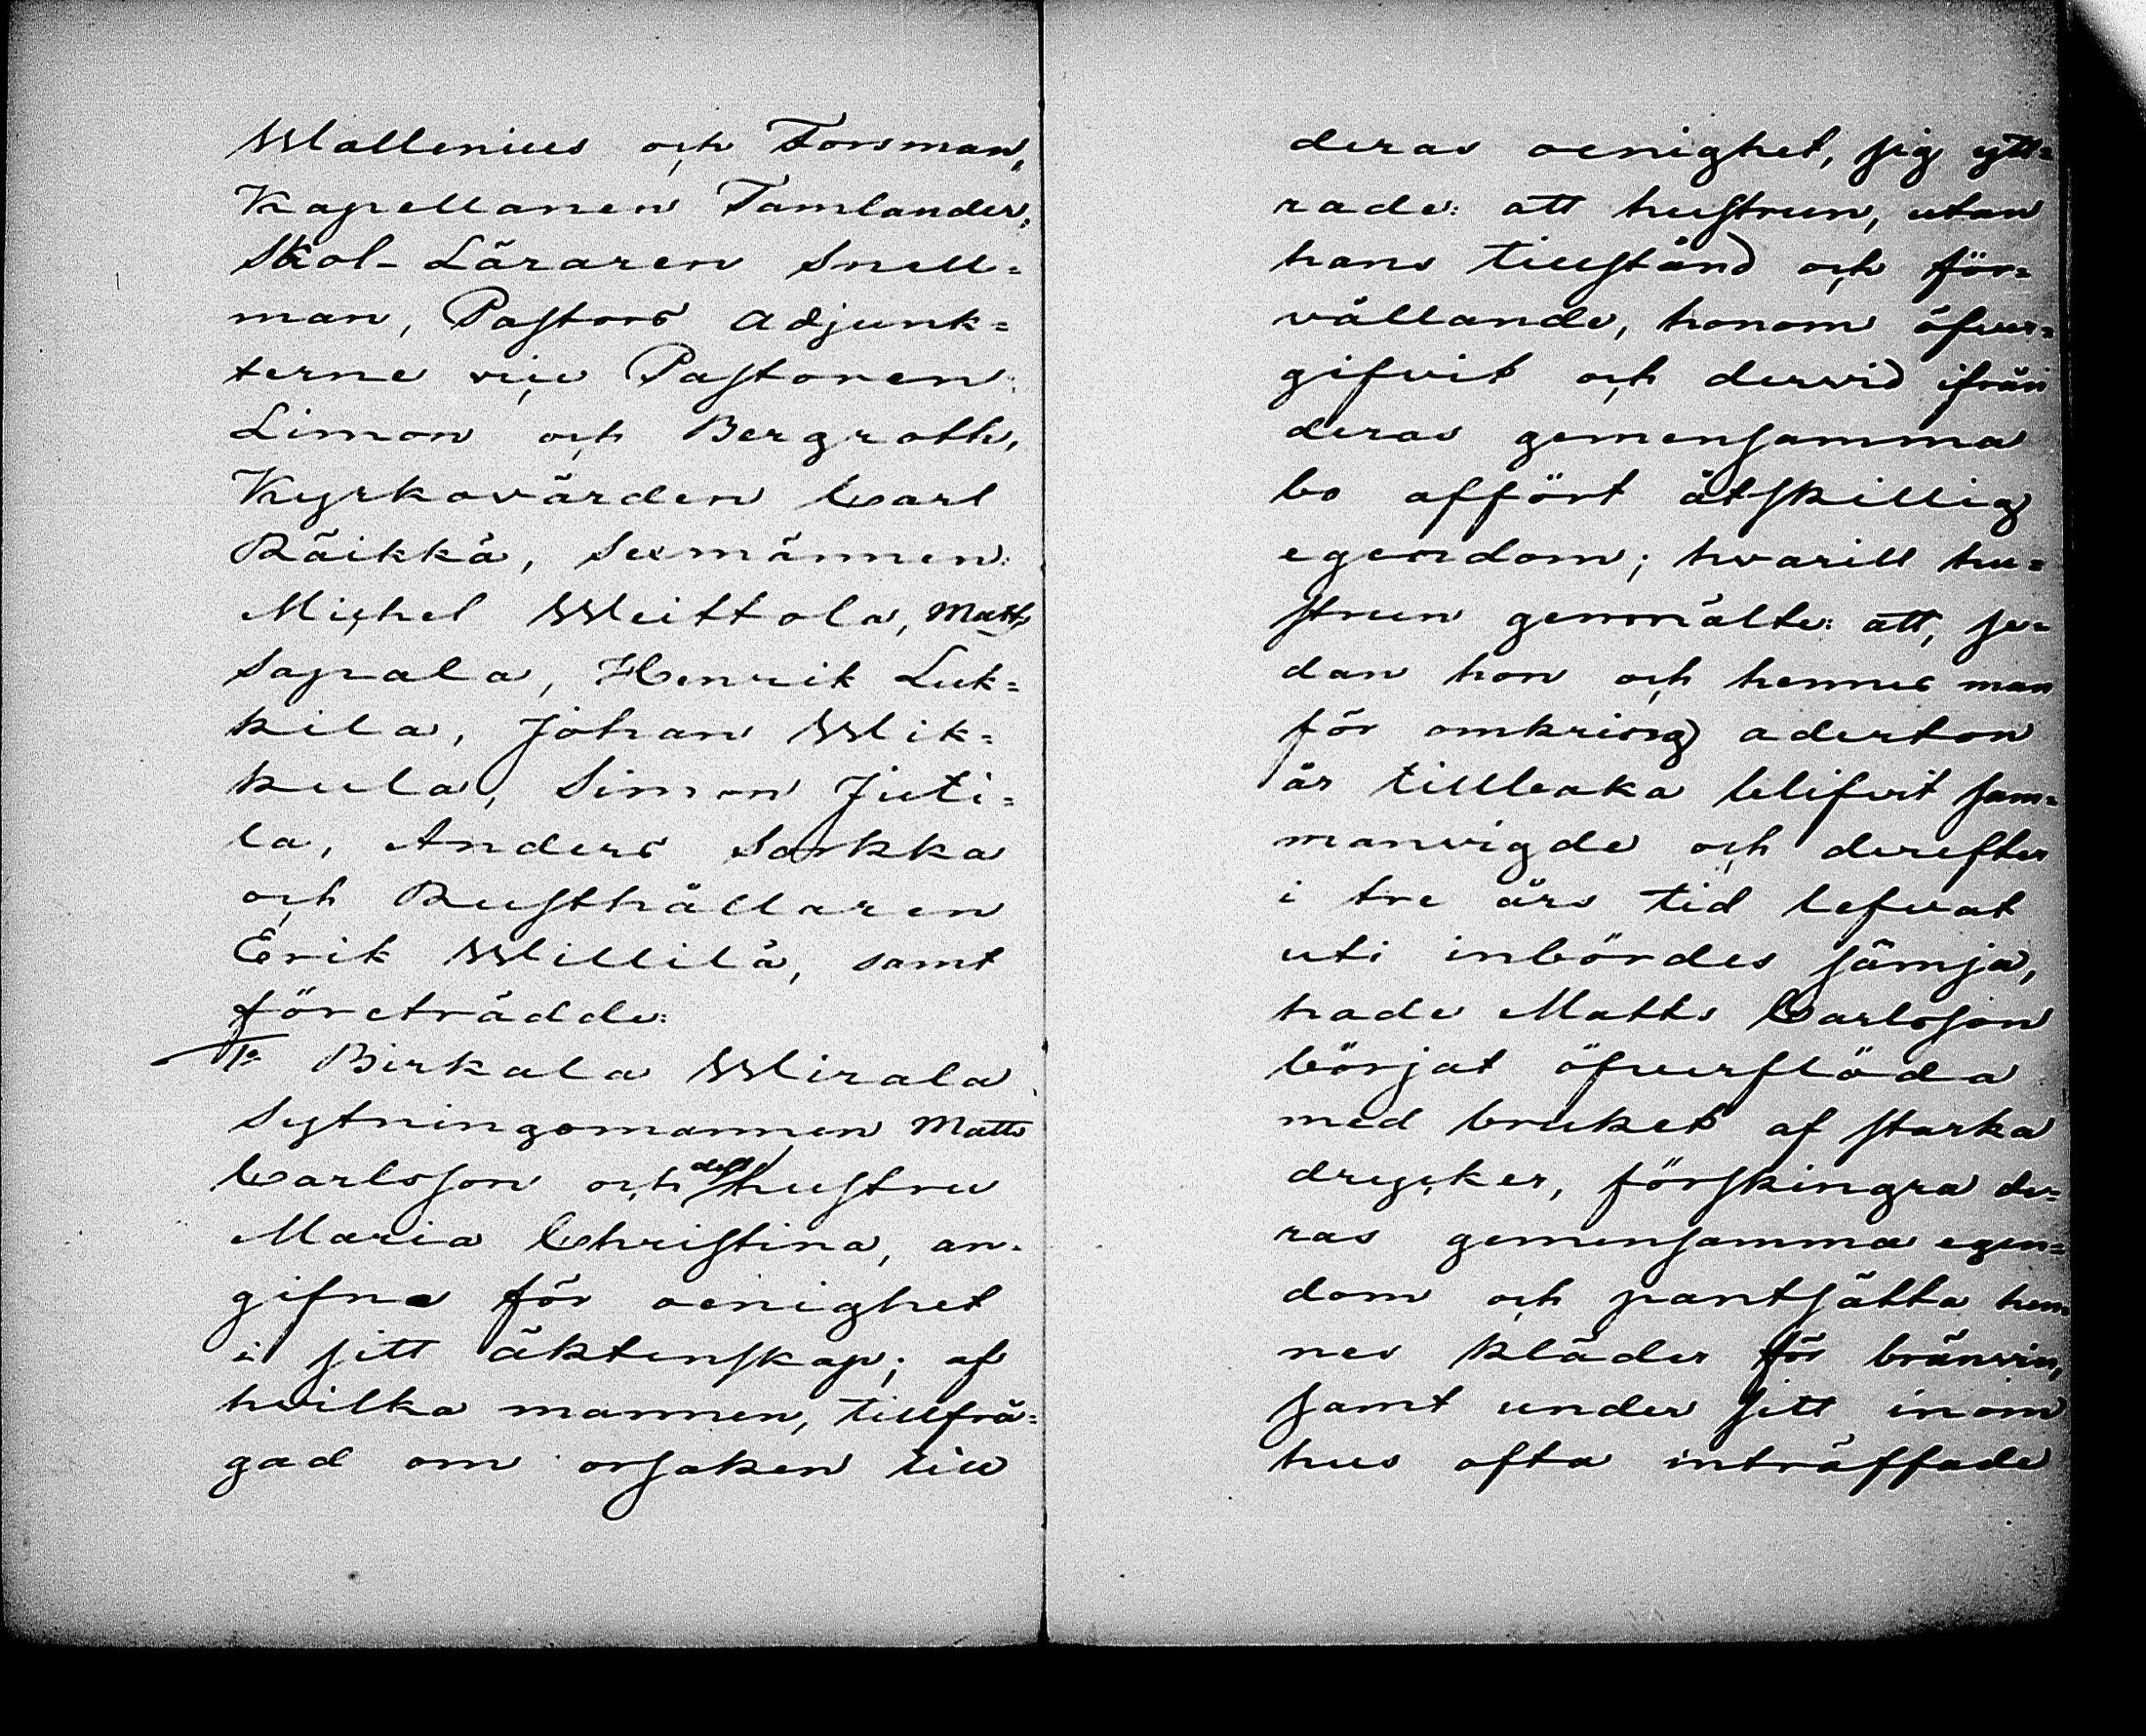 Wallenius och Forsman,
Kapellanen Tamlander,
Skol-Läraren Snell=
man, Pastors Adjunk=
terne vice Pastoren
Limon och Bergroth,
Kyrkovärden Carl
Räikkä, Sexmännen:
Michel Weittola, Matts
Sapala, Henrik Luk=
kila, Johan Wik=
kula, Simon Juti=
la, Anders Sorkka
och Rusthållaren
Erik Willilä, samt
företrädde:
1o Birkala Wirala
Sytningsmannen Matts
Carlsson och dess hustru
Maria Christina, an-
gifne för oenighet
i sitt äktenskap; af
hvilka mannen, tillfrå=
gad om orsaken till
deras oenighet, sig ytt=
rade: att hustrun, utan
hans tillstånd och för=
vållande, honom öfver=
gifvit och dervid ifrån
deras gemensamma
bo affört åtskillig
egendom; hvartill hu=
strun genmälte: att, se-
dan hon och hennes man
för omkring aderton
år tillbaka blifvit sam=
manvigde och derefter
i tre års tid lefvat
uti inbördes sämja,
hade Matts Carlsson
börjat öfverflöda
med bruket af starka
drycker, förskingra de=
ras gemensamma egen=
dom och pantsätta hen=
nes kläder för brännvin,
samt under sitt inom
hus ofta inträffade